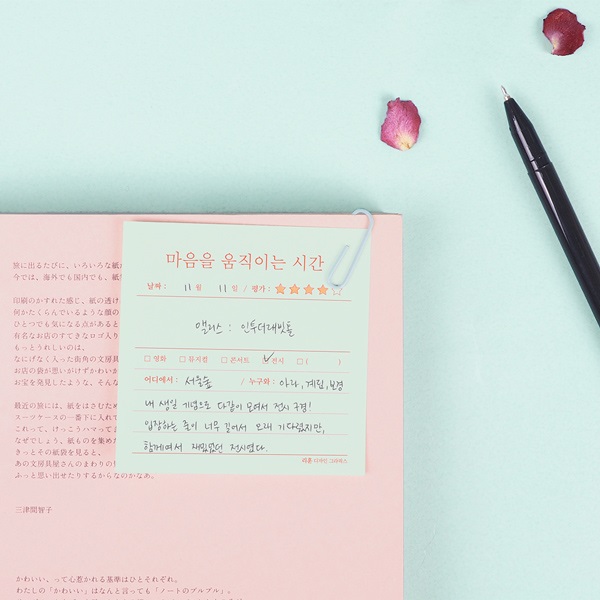 旅に出るたびに、いろいろな紙が
今では、海外でも国内でも、紙
印刷のかすれた感じ、紙の透け
何かたくらんでいるような顔の
ひとつでも気になる点があると
有名なお店のすてきなロゴ入り
もっとうれしいのは、
なにげなく入った街角の文房具
お店の袋が思いがけずかわいか
お宝を発見したような、そんな
最近の旅には、紙をはさむため
スーツケースの一番下に入れて
これって、けっこうハマってよ
なぜでしょう。紙ものを集めた
きっとその紙袋を見ると、
あの文房具屋さんのまわりの
ふっと思い出せたりするからなのかなあ。
三津間智子
かわいい、って心惹かれる基準はひとそれぞれ。
わたしの「かわいい」はなんと言っても「ノートのプルプル」。
마음을 움직이는 시간
날짜 : 11 월 11 일 / 평가 : ★★★★☆
앨리스 : 인투더래빗홀
□ 영화 □ 뮤지컬 □ 콘서트 ☑ 전시 □ ( )
어디에서 : 서울숲 / 누구와 : 아라, 계린, 보경
내 생일 기념으로 다같이 모여서 전시 구경!
입장하는 줄이 너무 길어서 오래 기다렸지만,
함께여서 재밌었던 전시였다.
리훈 디자인 그라픽스